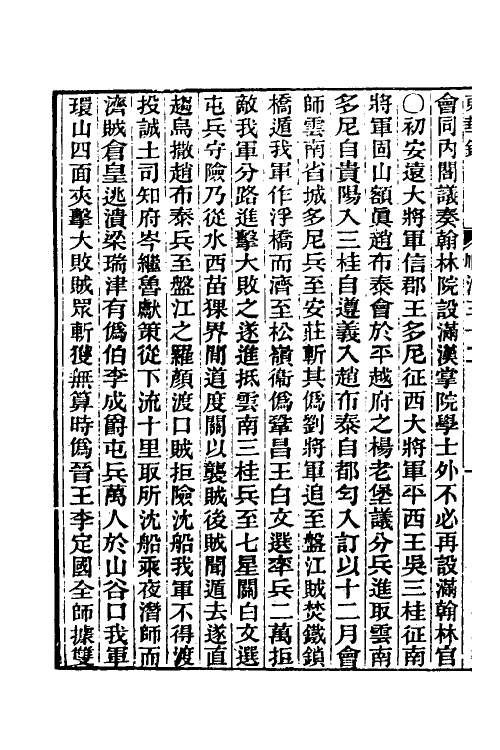 會同內閣議奏翰林院設滿漢掌院學士外不必再設滿翰林官
○初安遠大將軍信郡王多尼征西大將軍平西王吳三桂征南
將軍固山額眞趙布泰會於平越府之楊老堡議分兵進取雲南
多尼自貴陽入三桂自遵義入趙布泰自都勻入訂以十二月會
師雲南省城多尼兵至安莊斬其僞劉將軍追至盤江賊焚鐵鎖
橋遁我軍作浮橋而濟至松嶺衞僞鞏昌王白文選率兵二萬拒
敵我軍分路進擊大敗之遂進抵雲南三桂兵至七星關白文選
屯兵守險乃從水西苗猓界間道度關以襲賊後賊聞遁去遂直
趨烏撒趙布泰兵至盤江之羅顏渡口賊拒險沈船我軍不得渡
投誠土司知府岑繼魯獻策從下流十里取所沈船乘夜潛師而
濟賊倉皇逃潰梁瑞津有僞伯李成爵屯兵萬人於山谷口我軍
環山四面夾擊大敗賊眾斬獲無算時僞晉王李定國全師據雙